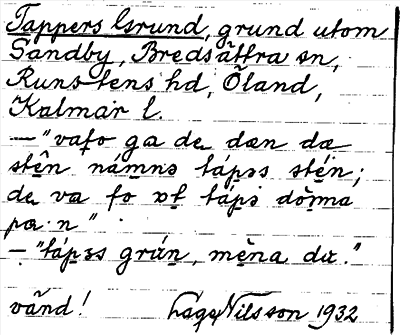 Tappers Grund, grund utom
Sandby, Bredsättra sn,
Runstens hd, Öland,
Kalmar l.
— "vafo ga de dæn dæ
stên námns tápəs stén;
de va fo ɒt tápə dörma
pæ·n"
— "tápəs grún, mèna du."
vänd! Lage Nilsson 1932